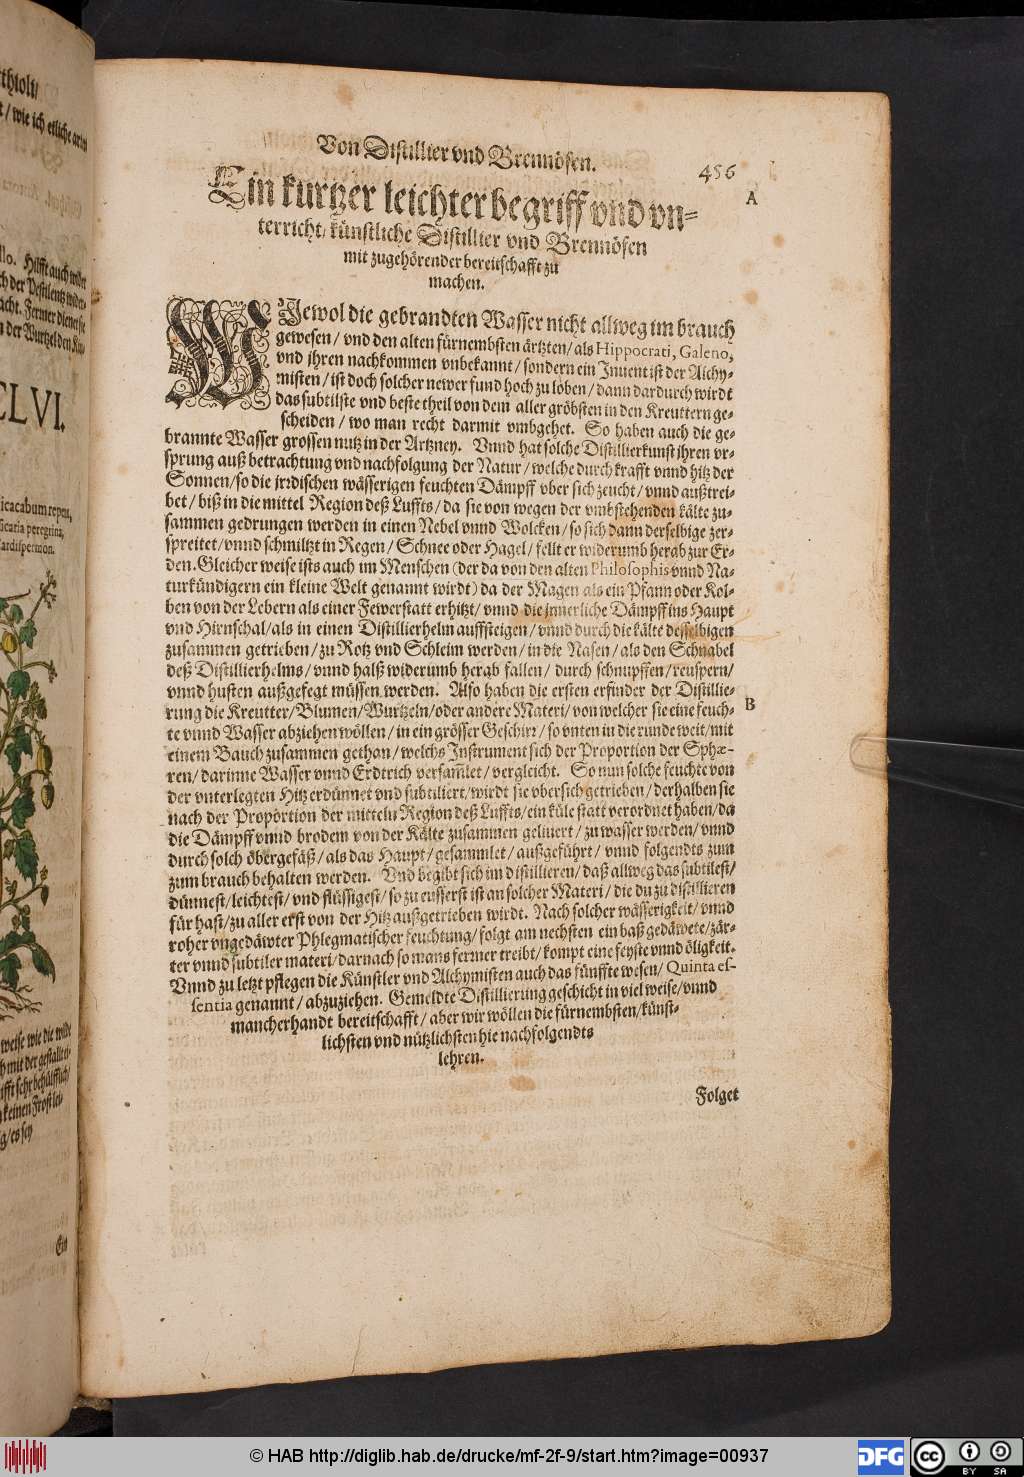 thioli/
t/ wie ich etliche
llo. Hilfft auch wider
ch der Pestilentz wider-
acht. Ferner dienet sie
n der Wurtzel den
CLVI.
icacabum repens,
ficaria peregrina,
ardispermon.
weise wie die wilde
b mit der gestallt
ifft sehr behülfflich/
keinen Frost lei-
g/ es sey
Ein
Von Distillier vnd Brennöfen.
456
A
Ein kurtzer leichter begriff vnd vn-
terricht/ künstliche Distillier vnd Brennöfen
mit zugehörender bereitschafft zu
machen.
WJewol die gebrandten Wasser nicht allweg im brauch
gewesen / vnd den alten fürnembsten ärtzten/ als Hippocrati, Galeno,
vnd jhren nachkommen vnbekannt / sondern ein Jnuent ist der Alchy-
misten / ist doch solcher newer fund hoch zu loben / dann dardurch wirdt
das subtilste vnd beste theil von dem aller gröbsten in den Kreuttern ge-
scheiden / wo man recht darmit vmbgehet. So haben auch die ge-
brannte Wasser grossen nutz in der Artzney. Vnnd hat solche Distillierkunst jhren vr-
sprung auß betrachtung vnd nachfolgung der Natur / welche durch krafft vnnd hitz der
Sonnen/ so die jrrdischen wässerigen feuchten Dämpff vber sich zeucht/ vnnd außtrei-
bet / biß in die mittel Region deß Luffts / da sie von wegen der vmbstehenden kälte zu-
sammen gedrungen werden in einen Nebel vnnd Wolcken / so sich dann derselbige zer-
spreitet/ vnnd schmiltzt in Regen / Schnee oder Hagel / fellt er widerumb herab zur Er-
den. Gleicher weise ists auch im Menschen (der da von den alten Philosophis vnnd Na-
turkündigern ein kleine Welt genannt wirdt) da der Magen als ein Pfann oder Kol-
ben von der Lebern als einer Fewerstatt erhitzt / vnnd die innerliche Dämpff ins Haupt
vnd Hirnschal/ als in einen Distillierhelm auffsteigen / vnnd durch die kälte desselbigen
zusammen getrieben / zu Rotz vnd Schleim werden / in die Nasen / als den Schnabel
deß Distillierhelms / vnnd halß widerumb herab fallen / durch schnupffen / reuspern/
vnnd husten außgefegt müssen werden. Also haben die ersten erfinder der Distillie-
B
rung die Kreutter/ Blumen/ Wurtzeln/ oder andere Materi / von welcher sie eine feuch-
te vnnd Wasser abziehen wöllen / in ein grösser Geschirr / so vnten in die runde weit/ mit
einem Bauch zusammen gethan / welchs Jnstrument sich der Proportion der Sphæ-
ren / darinne Wasser vnnd Erdtrich versam̃let / vergleicht. So nun solche feuchte von
der vnterlegten Hitz erdünnet vnd subtiliert/ wirdt sie vbersich getrieben / derhalben sie
nach der Proportion der mitteln Region deß Luffts/ ein küle statt verordnet haben/ da
die Dämpff vnnd brodem von der Kälte zusammen geliuert / zu wasser werden/ vnnd
durch solch öbergefäß / als das Haupt / gesammlet / außgeführt / vnnd folgendts zum
zum brauch behalten werden. Vnd begibt sich im distillieren / daß allweg das subtilest/
dünnest / leichtest/ vnd flüssigest / so zu eusserst ist an solcher Materi / die du zu distillieren
für hast / zu aller erst von der Hitz außgetrieben wirdt. Nach solcher wässerigkeit / vnnd
roher vngedäwter Phlegmatischer feuchtung / folgt am nechsten ein baß gedäwete / zär-
ter vnnd subtiler materi/ darnach so mans ferrner treibt / kompt eine feyste vnnd öligkeit.
Vnnd zu letzt pflegen die Künstler vnd Alchymisten auch das fünffte wesen / Quinta es-
sentia genannt / abzuziehen. Gemeldte Distillierung geschicht in viel weise/ vnnd
mancherhandt bereitschafft / aber wir wöllen die fürnembsten/ künst-
lichsten vnd nützlichsten hie nachfolgendts
lehren.
Folget
© HAB http://diglib.hab.de/drucke/mf-2f-9/start.htm?image=00937
DFG
cc
BY SA